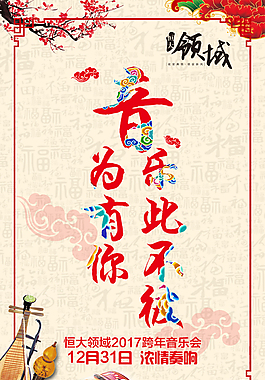 领域
音乐此不彼
为有你
恒大领域2017跨年音乐会
12月31日 浓情奏响